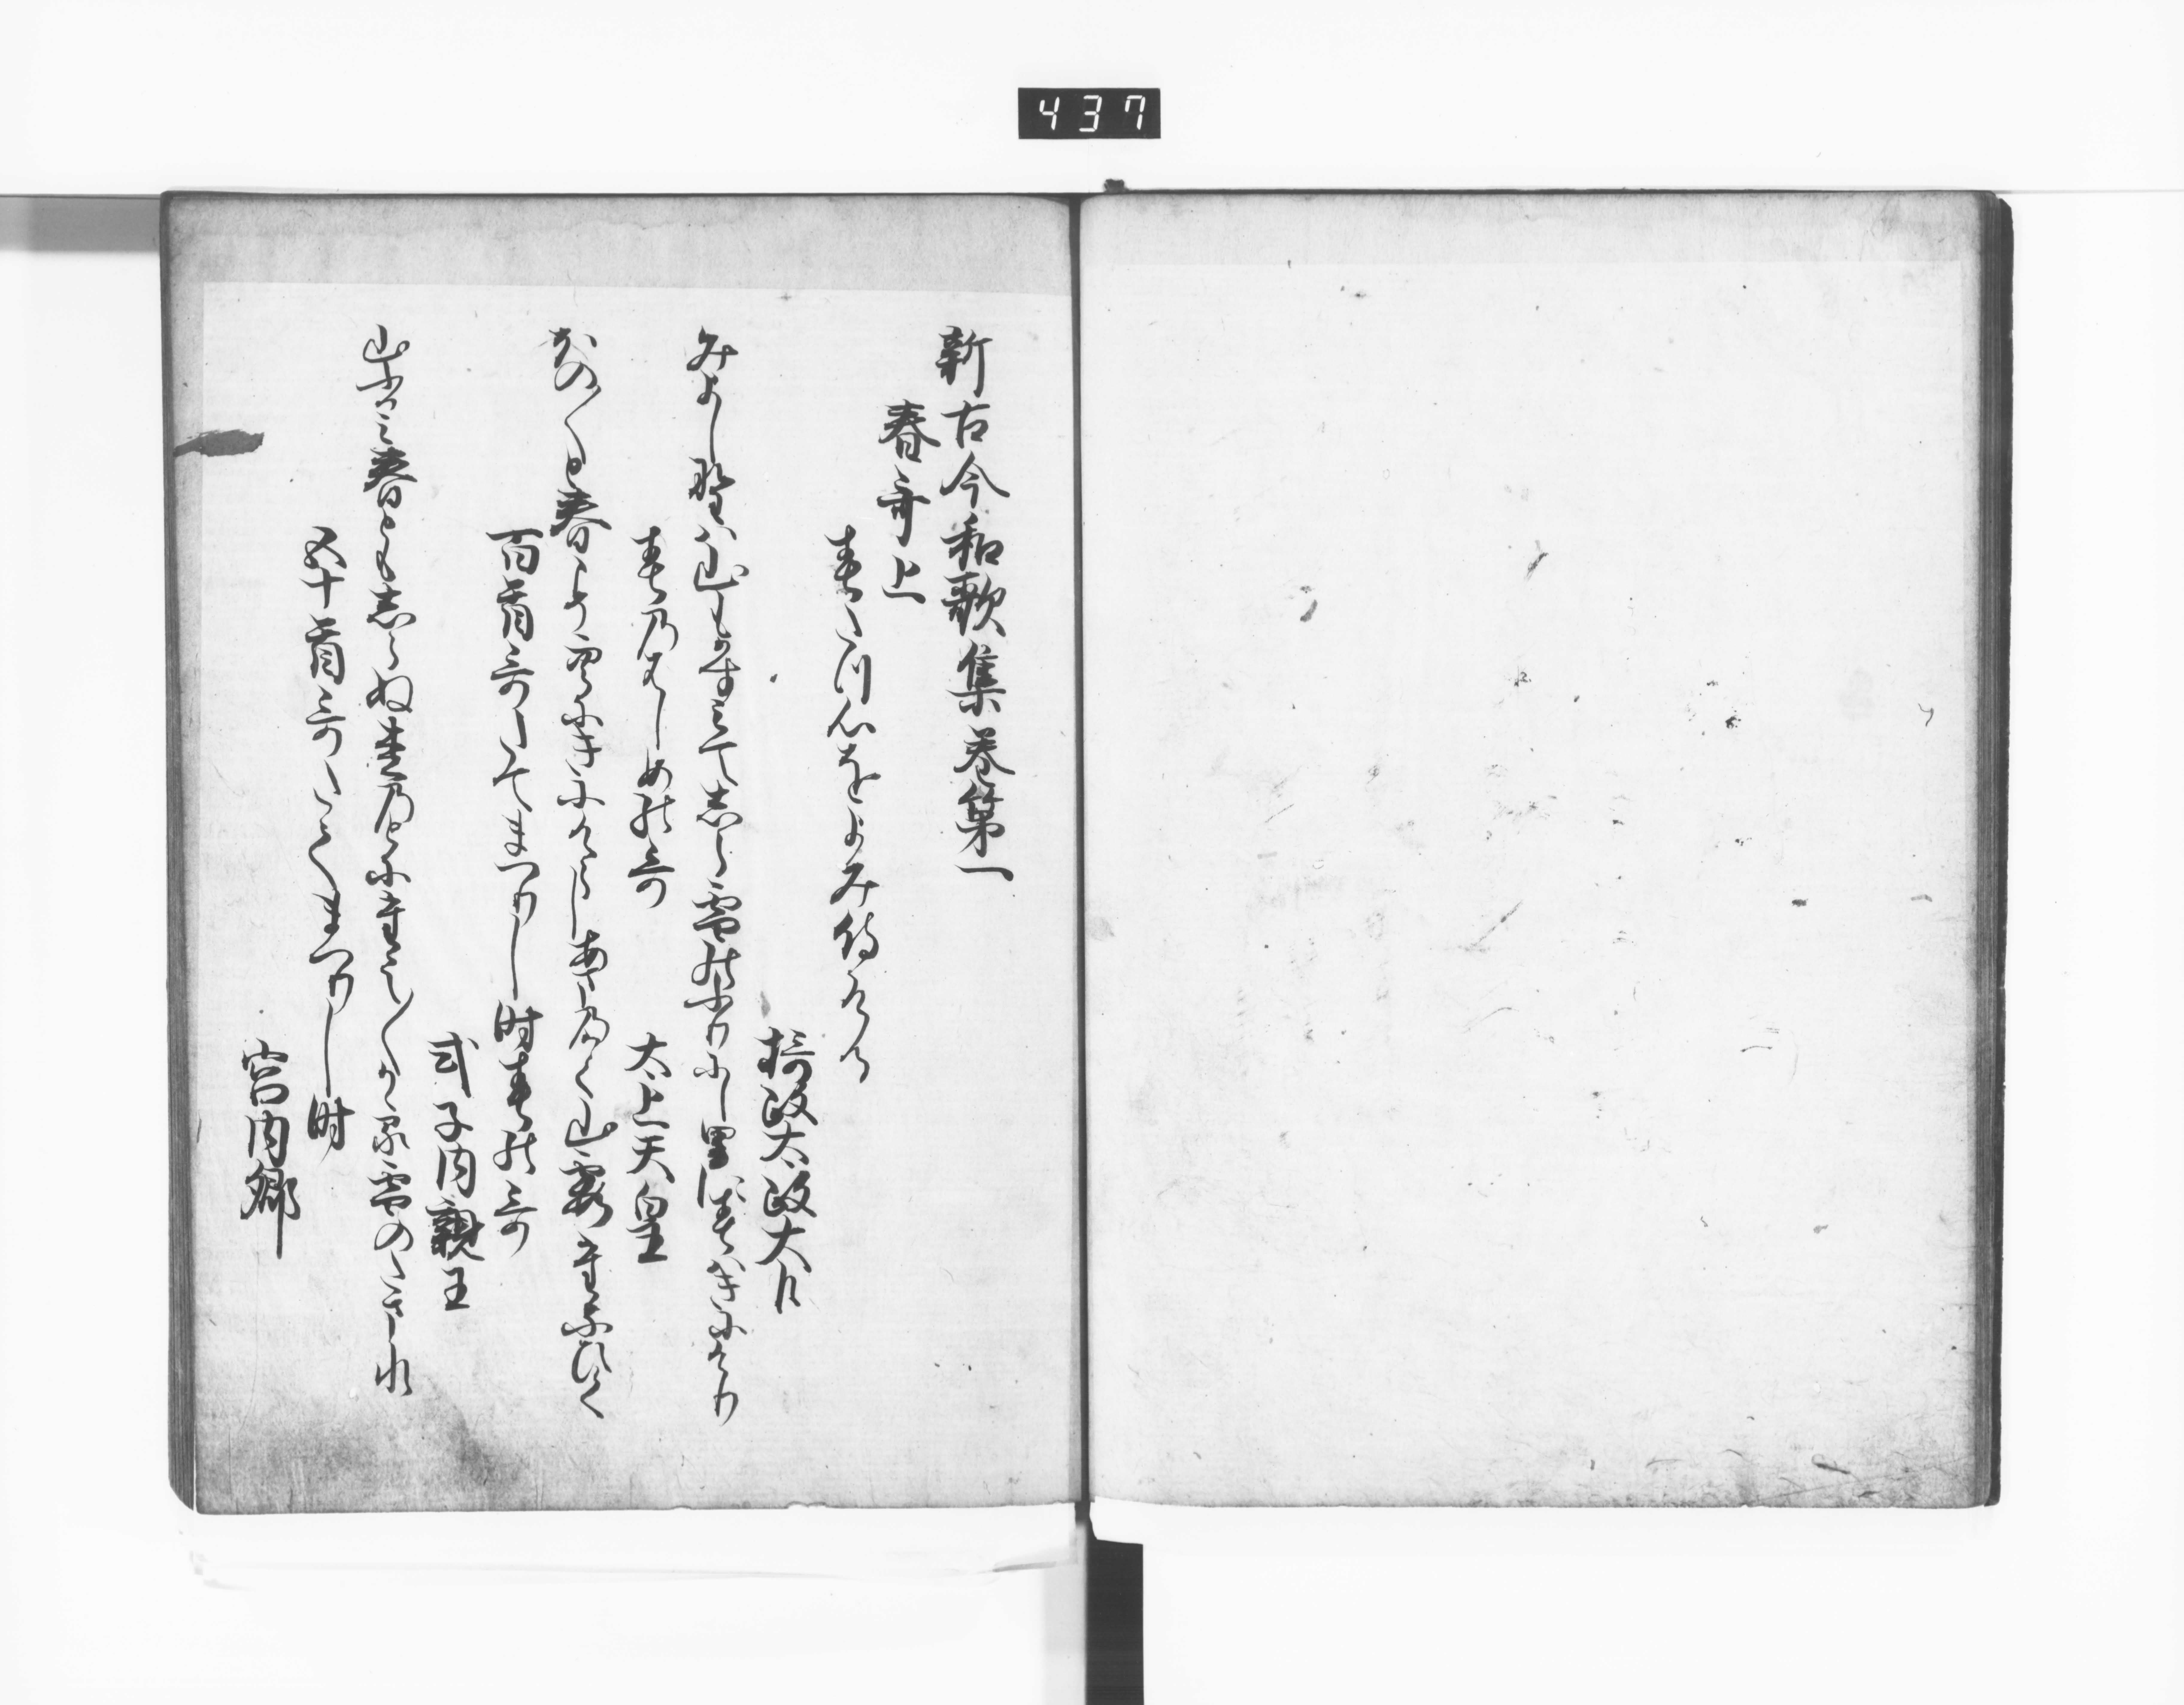 437
新古今和歌集巻第一
春哥上
春たつ心をよみ侍ける
摂政太政大臣
みよし野は山もかすみてしら雪のふりにし里に春はきにけり
春のはしめの哥
太上天皇
ほの〳〵と春こそ空にきにけらしあまのかく山霞たなひく
百首哥たてまつりし時春の哥
式子内親王
山ふかみ春ともしらぬ松のとにたえ〳〵かゝる雪の玉水
五十首哥たてまつりし時
宮内卿